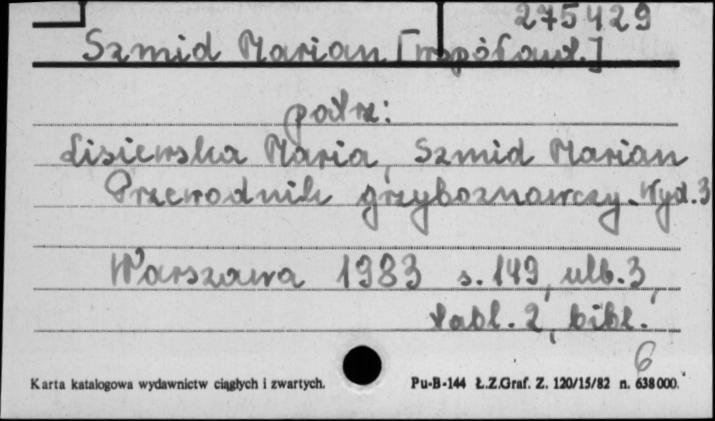 275429
Szmid Marian [współaut.]
patrz:
Lisiewska Maria, Szmid Marian
Przewodnik grzyboznawczy. Wyd. 3
Warszawa 1983 s. 149, ulb. 3,
tabl. 2, bibl.
6
Karta katalogowa wydawnictw ciągłych i zwartych. Pu-B-144 Ł.Z.Graf. Z. 120/15/82 n. 638000.